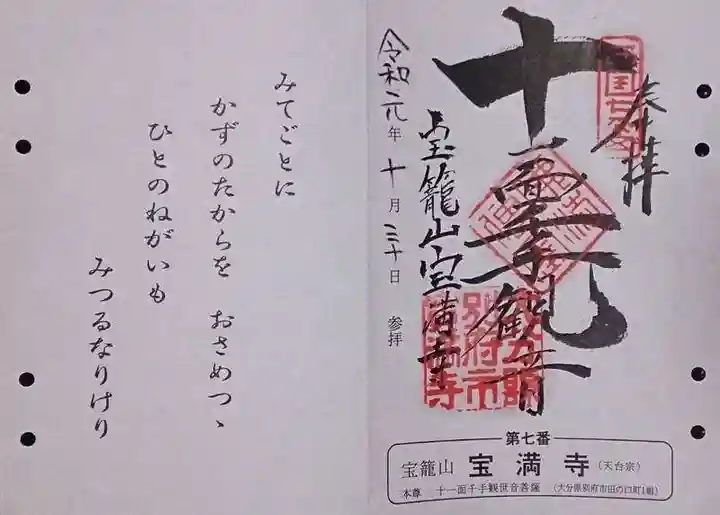 奉拝
十一面千手観音
宝籠山宝満寺
令和元年十月三十日 参拝
第七番
宝籠山 宝満寺 (天台宗)
本尊 十一面千手観世音菩薩 (大分県別府市田の口町1組)
みてごとに
かずのたからを おさめつゝ
ひとのねがいも
みつるなりけり